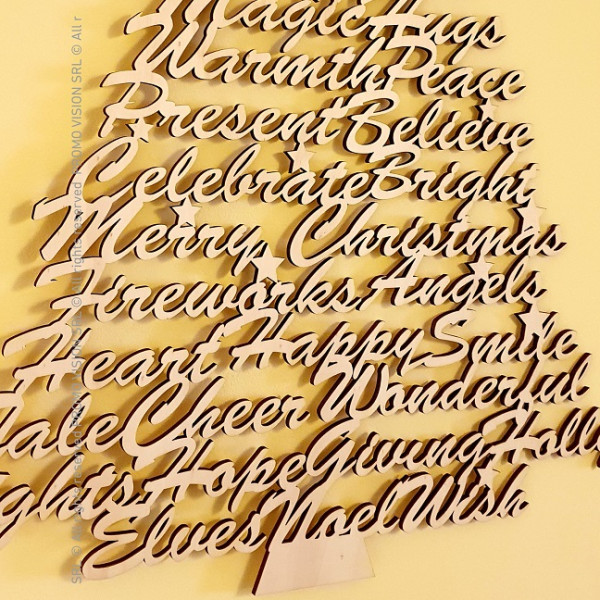 Magic Hugs
Warmth Peace
Present Believe
Celebrate Bright
Merry Christmas
Fireworks Angels
Heart Happy Smile
ale Cheer Wonderful
ghts Hope Giving Holl
Elves Noel Wish
VISION SRL © All r